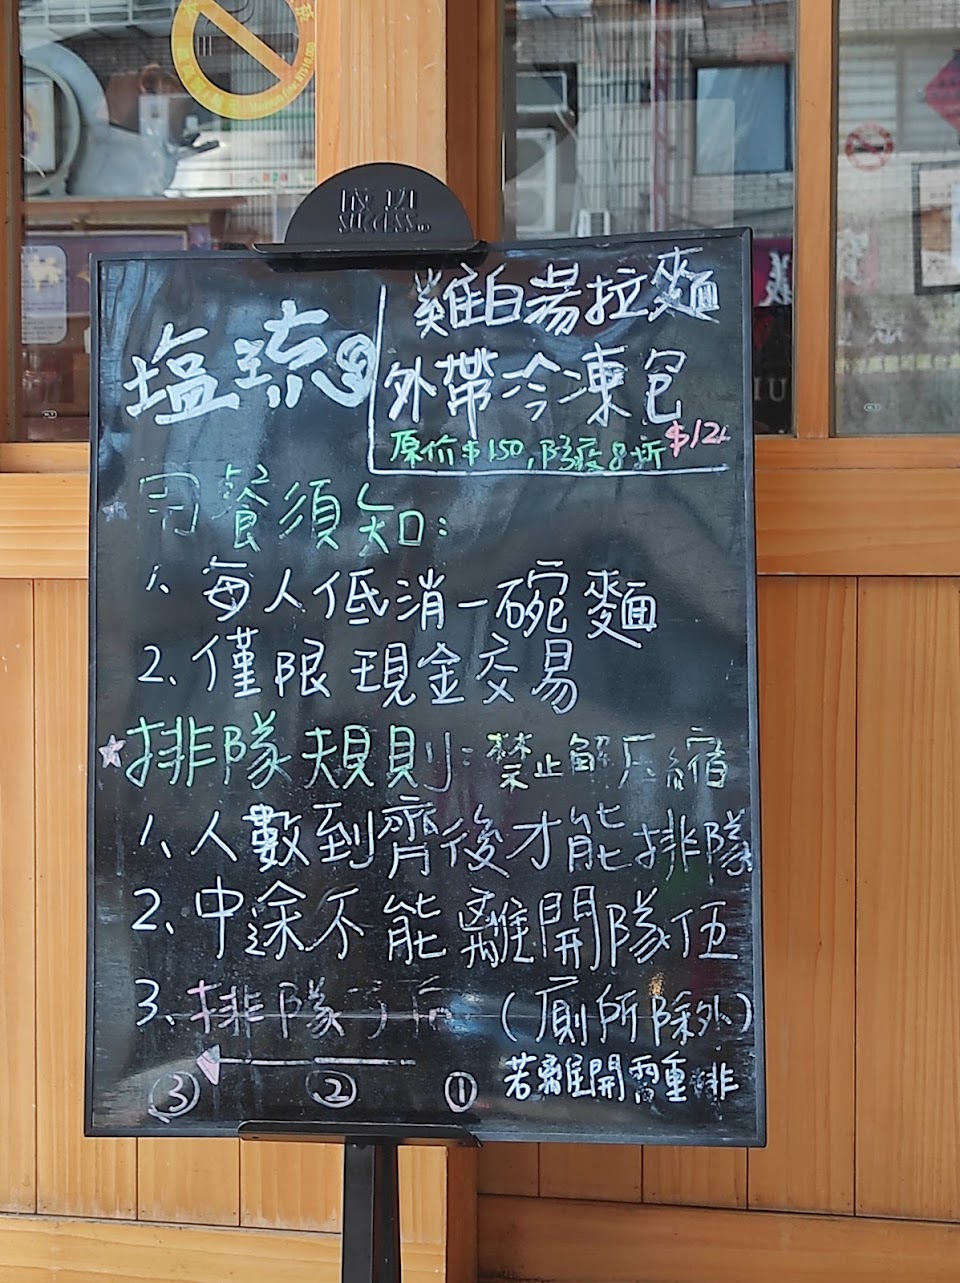 塩琉
雞白湯拉麵
外帶冷凍包
原价$150,防疫8折 $12
用餐須知:
1. 每人低消一碗麵
2. 僅限現金交易
排隊規則: 禁止解压縮
1. 人數到齊後才能排隊
2. 中途不能離開隊伍
(廁所除外)
3. 排隊方向
若離開需重排
③ ② ①
SUCCESS